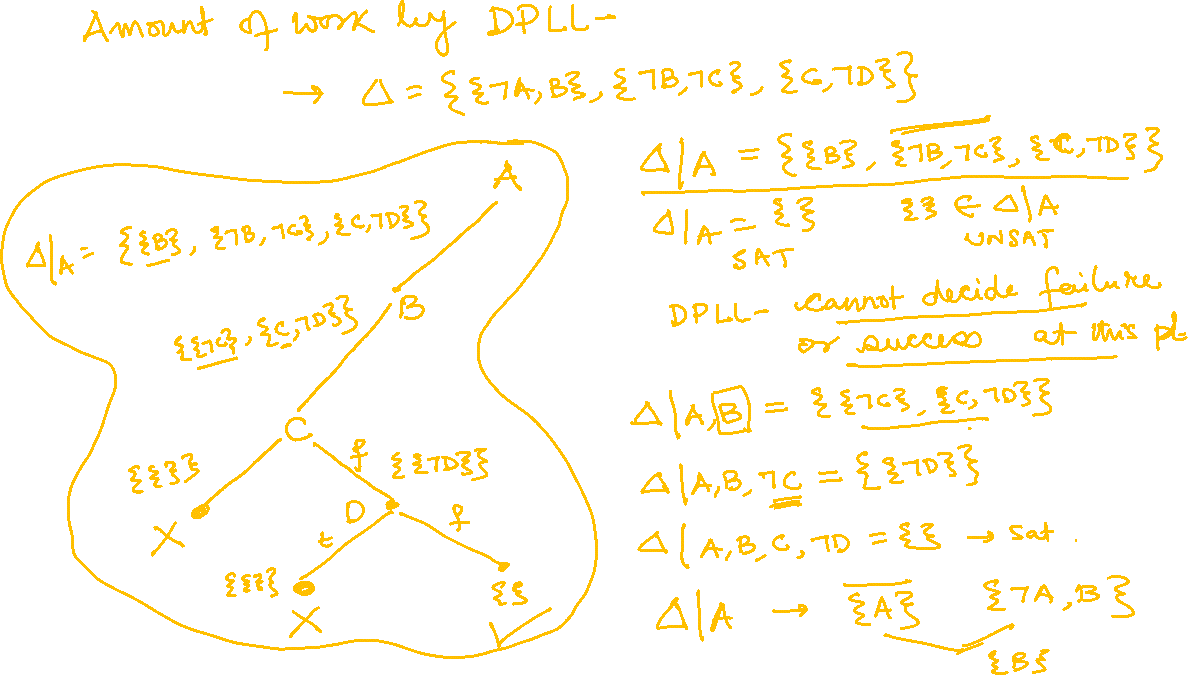 Amount of work by DPLL-
→ Δ = {{¬A, B}, {¬B, ¬C}, {C, ¬D}}
A
Δ|A = {{B}, {¬B, ¬C}, {C, ¬D}}
B
{{¬C}, {C, ¬D}}
C
{{}}
f
{{¬D}}
X
D
t
f
{{}}
X
{}
Δ|A = {{B}, {¬B, ¬C}, {C, ¬D}}
Δ|A = {} {} ∈ Δ|A
SAT UNSAT
DPLL- cannot decide failure
or success at this pt
Δ|A, B = {{¬C}, {C, ¬D}}
Δ|A, B, ¬C = {{¬D}}
Δ|A, B, C, ¬D = {} → sat.
Δ|A → {A} {¬A, B}
{B}